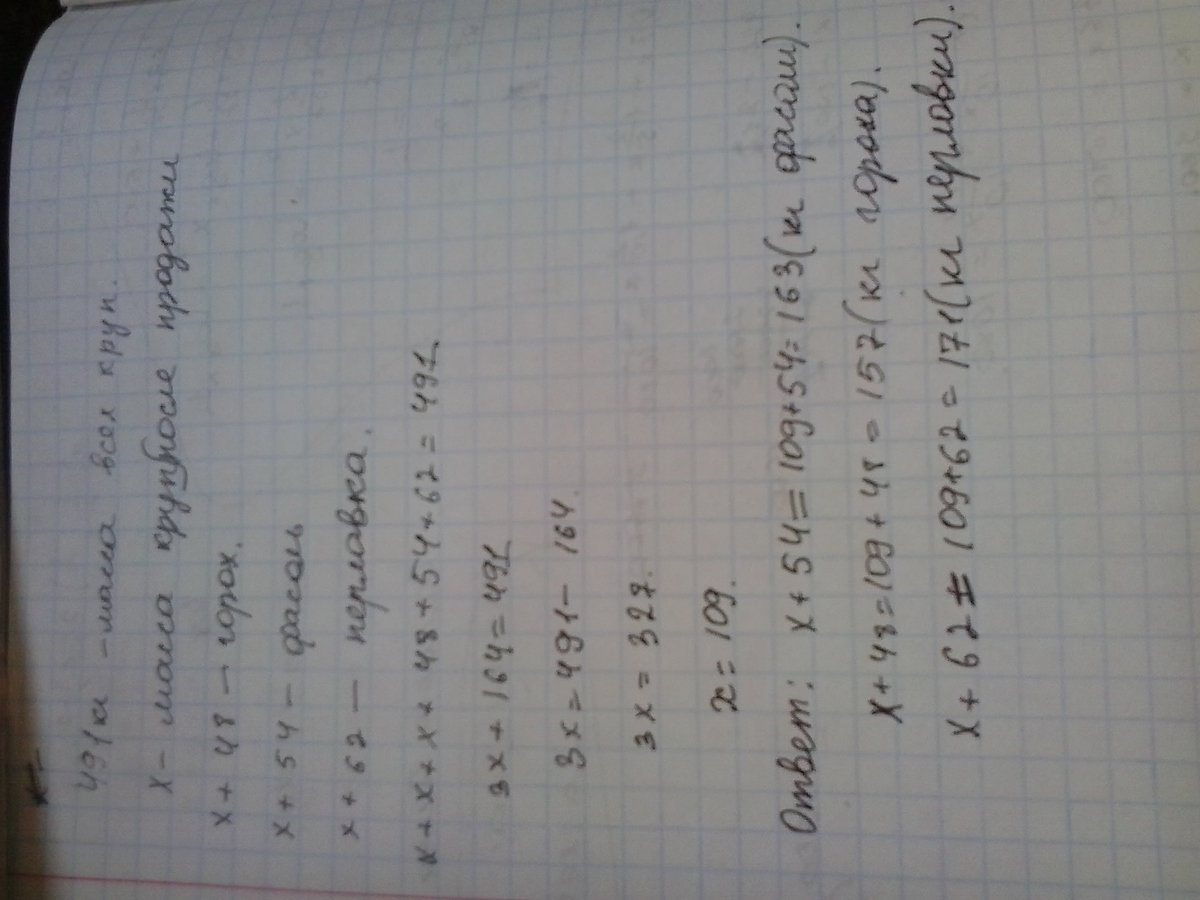 491кг - масса всех круп.
x - масса круп после продажи
x + 48 - горох.
x + 54 - фасоль
x + 62 - перловка.
x + x + x + 48 + 54 + 62 = 491
3x + 164 = 491
3x = 491 - 164.
3x = 327.
x = 109.
Ответ: x + 54 = 109 + 54 = 163 (кг фасоли).
x + 48 = 109 + 48 = 157 (кг гороха).
x + 62 = 109 + 62 = 171 (кг перловки).